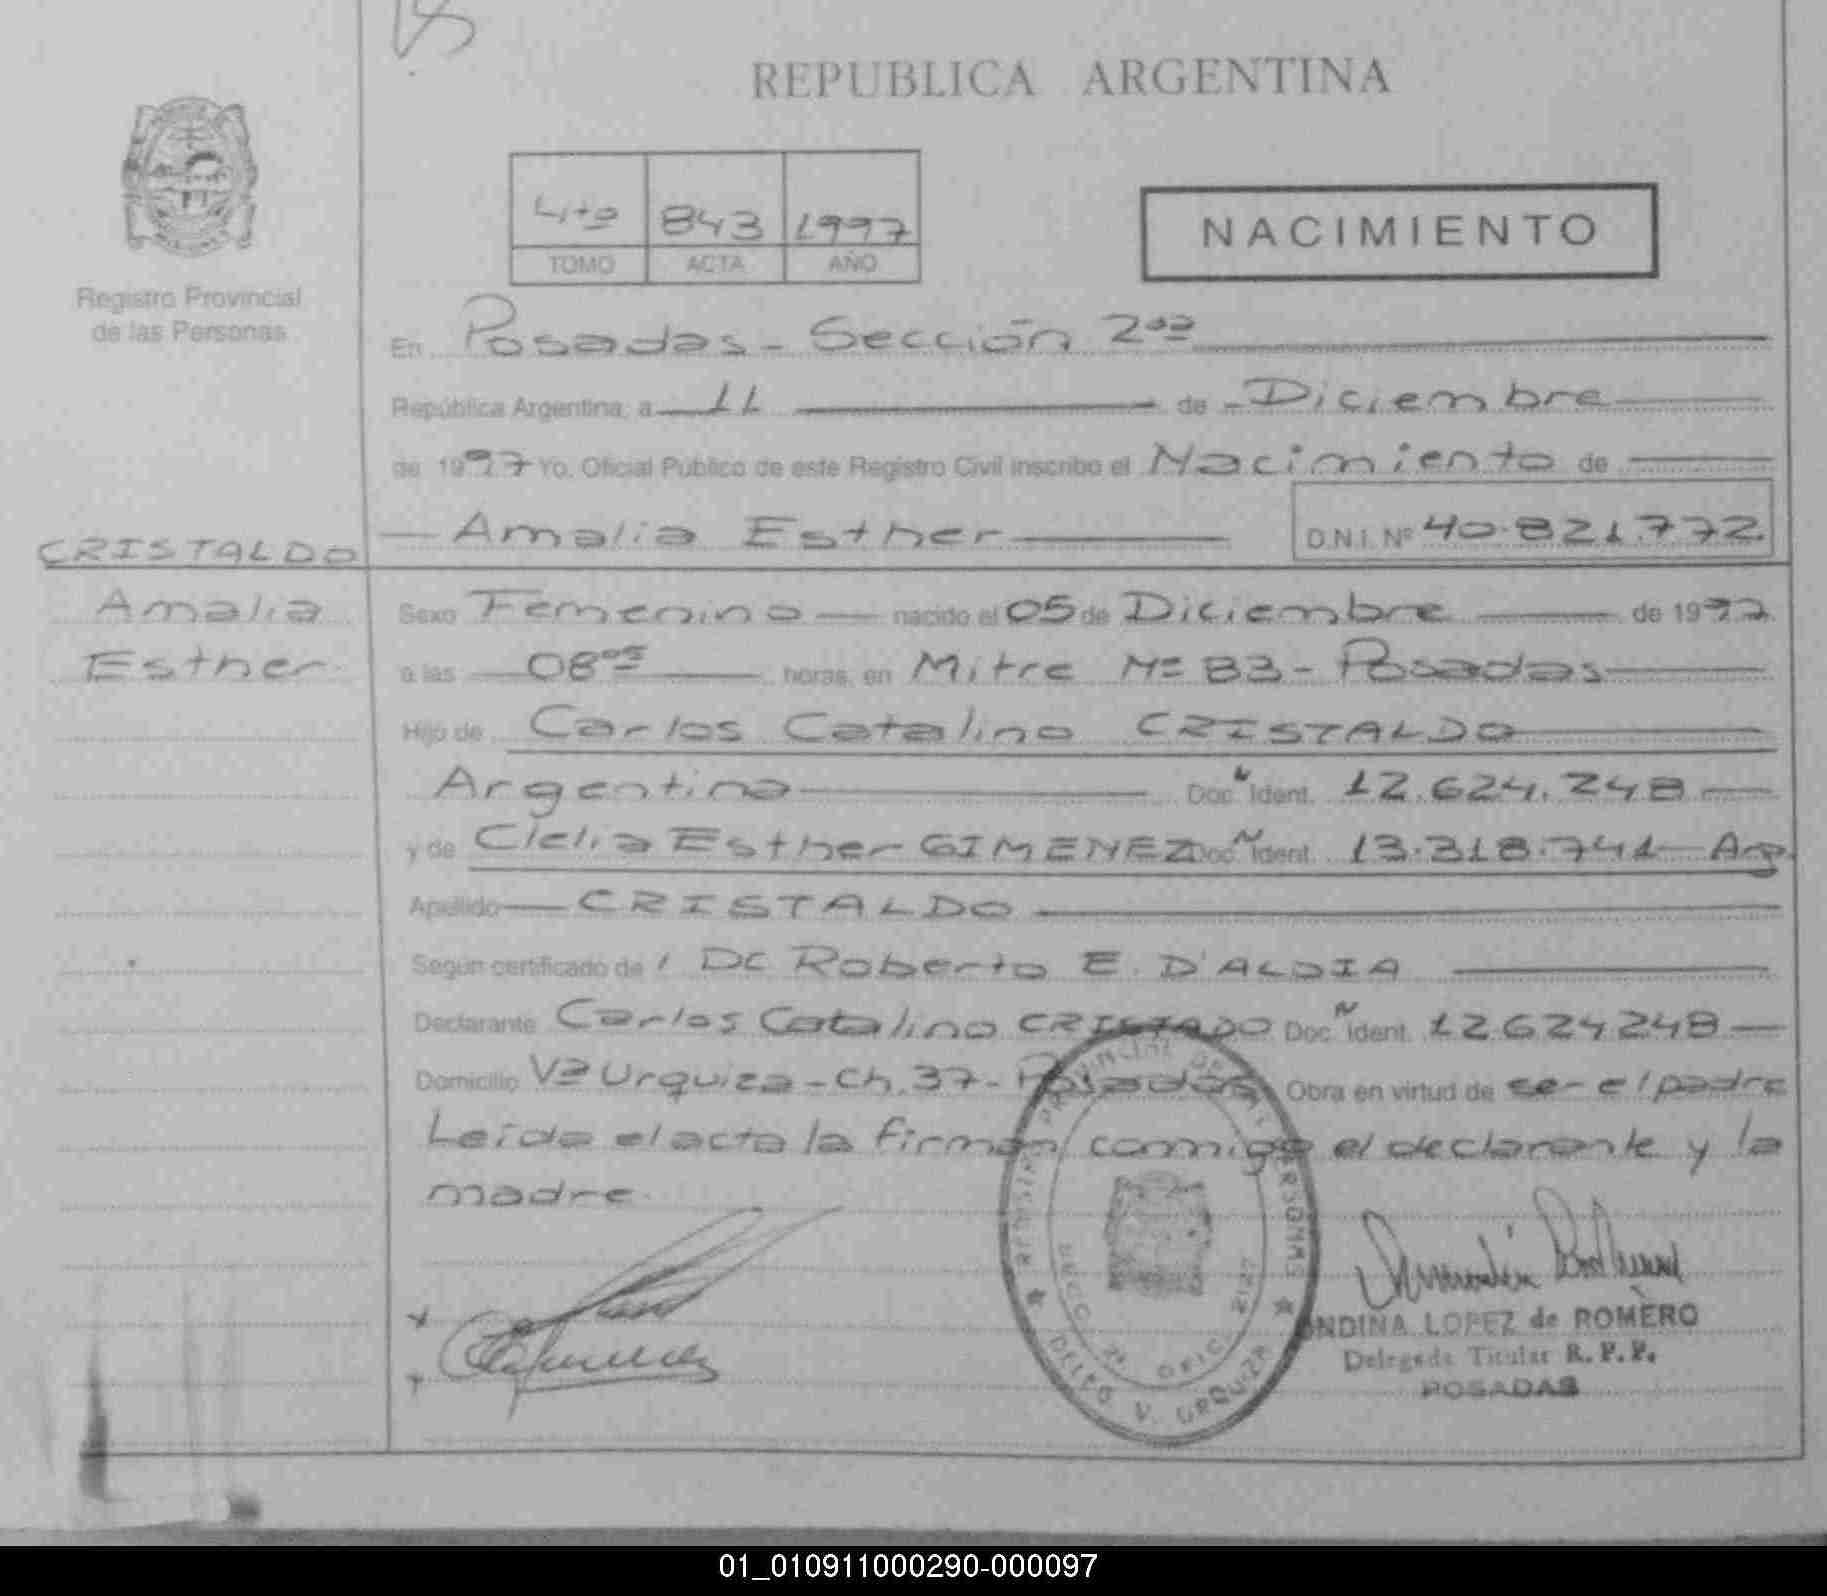 REPUBLICA ARGENTINA
4to 843 1997
TOMO ACTA AÑO
NACIMIENTO
Registro Provincial
de las Personas
En Posadas - Sección 2da
República Argentina, a 11 de Diciembre
de 1997 Yo, Oficial Público de este Registro Civil inscribo el Nacimiento de
Amalia Esther D.N.I. Nº 40.821.772
CRISTALDO
Amalia
Esther
Sexo Femenino nacido el 05 de Diciembre de 1997
a las 08 05 horas, en Mitre Nº 83 - Posadas
Hijo de Carlos Catalino CRISTALDO
Argentino Doc. N Ident. 12.624.248
y de Clelia Esther GIMENEZ Doc. N Ident. 13.318.741 Arg.
Apellido CRISTALDO
Según certificado de Roberto E. D'ALDIA
Declarante Carlos Catalino CRISTADO Doc. N Ident. 12.624.248
Domicilio Vª Urquiza - Ch. 37 - Posadas Obra en virtud de ser el padre
Leída el acta la firman conmigo el declarante y la
madre.
REGISTRO PROVINCIAL DE LAS PERSONAS
SECC. 2ª OFIC. 2127
DELEG V. URQUIZA
ONDINA LOPEZ de ROMERO
Delegada Titular R. P. P.
POSADAS
01_010911000290-000097